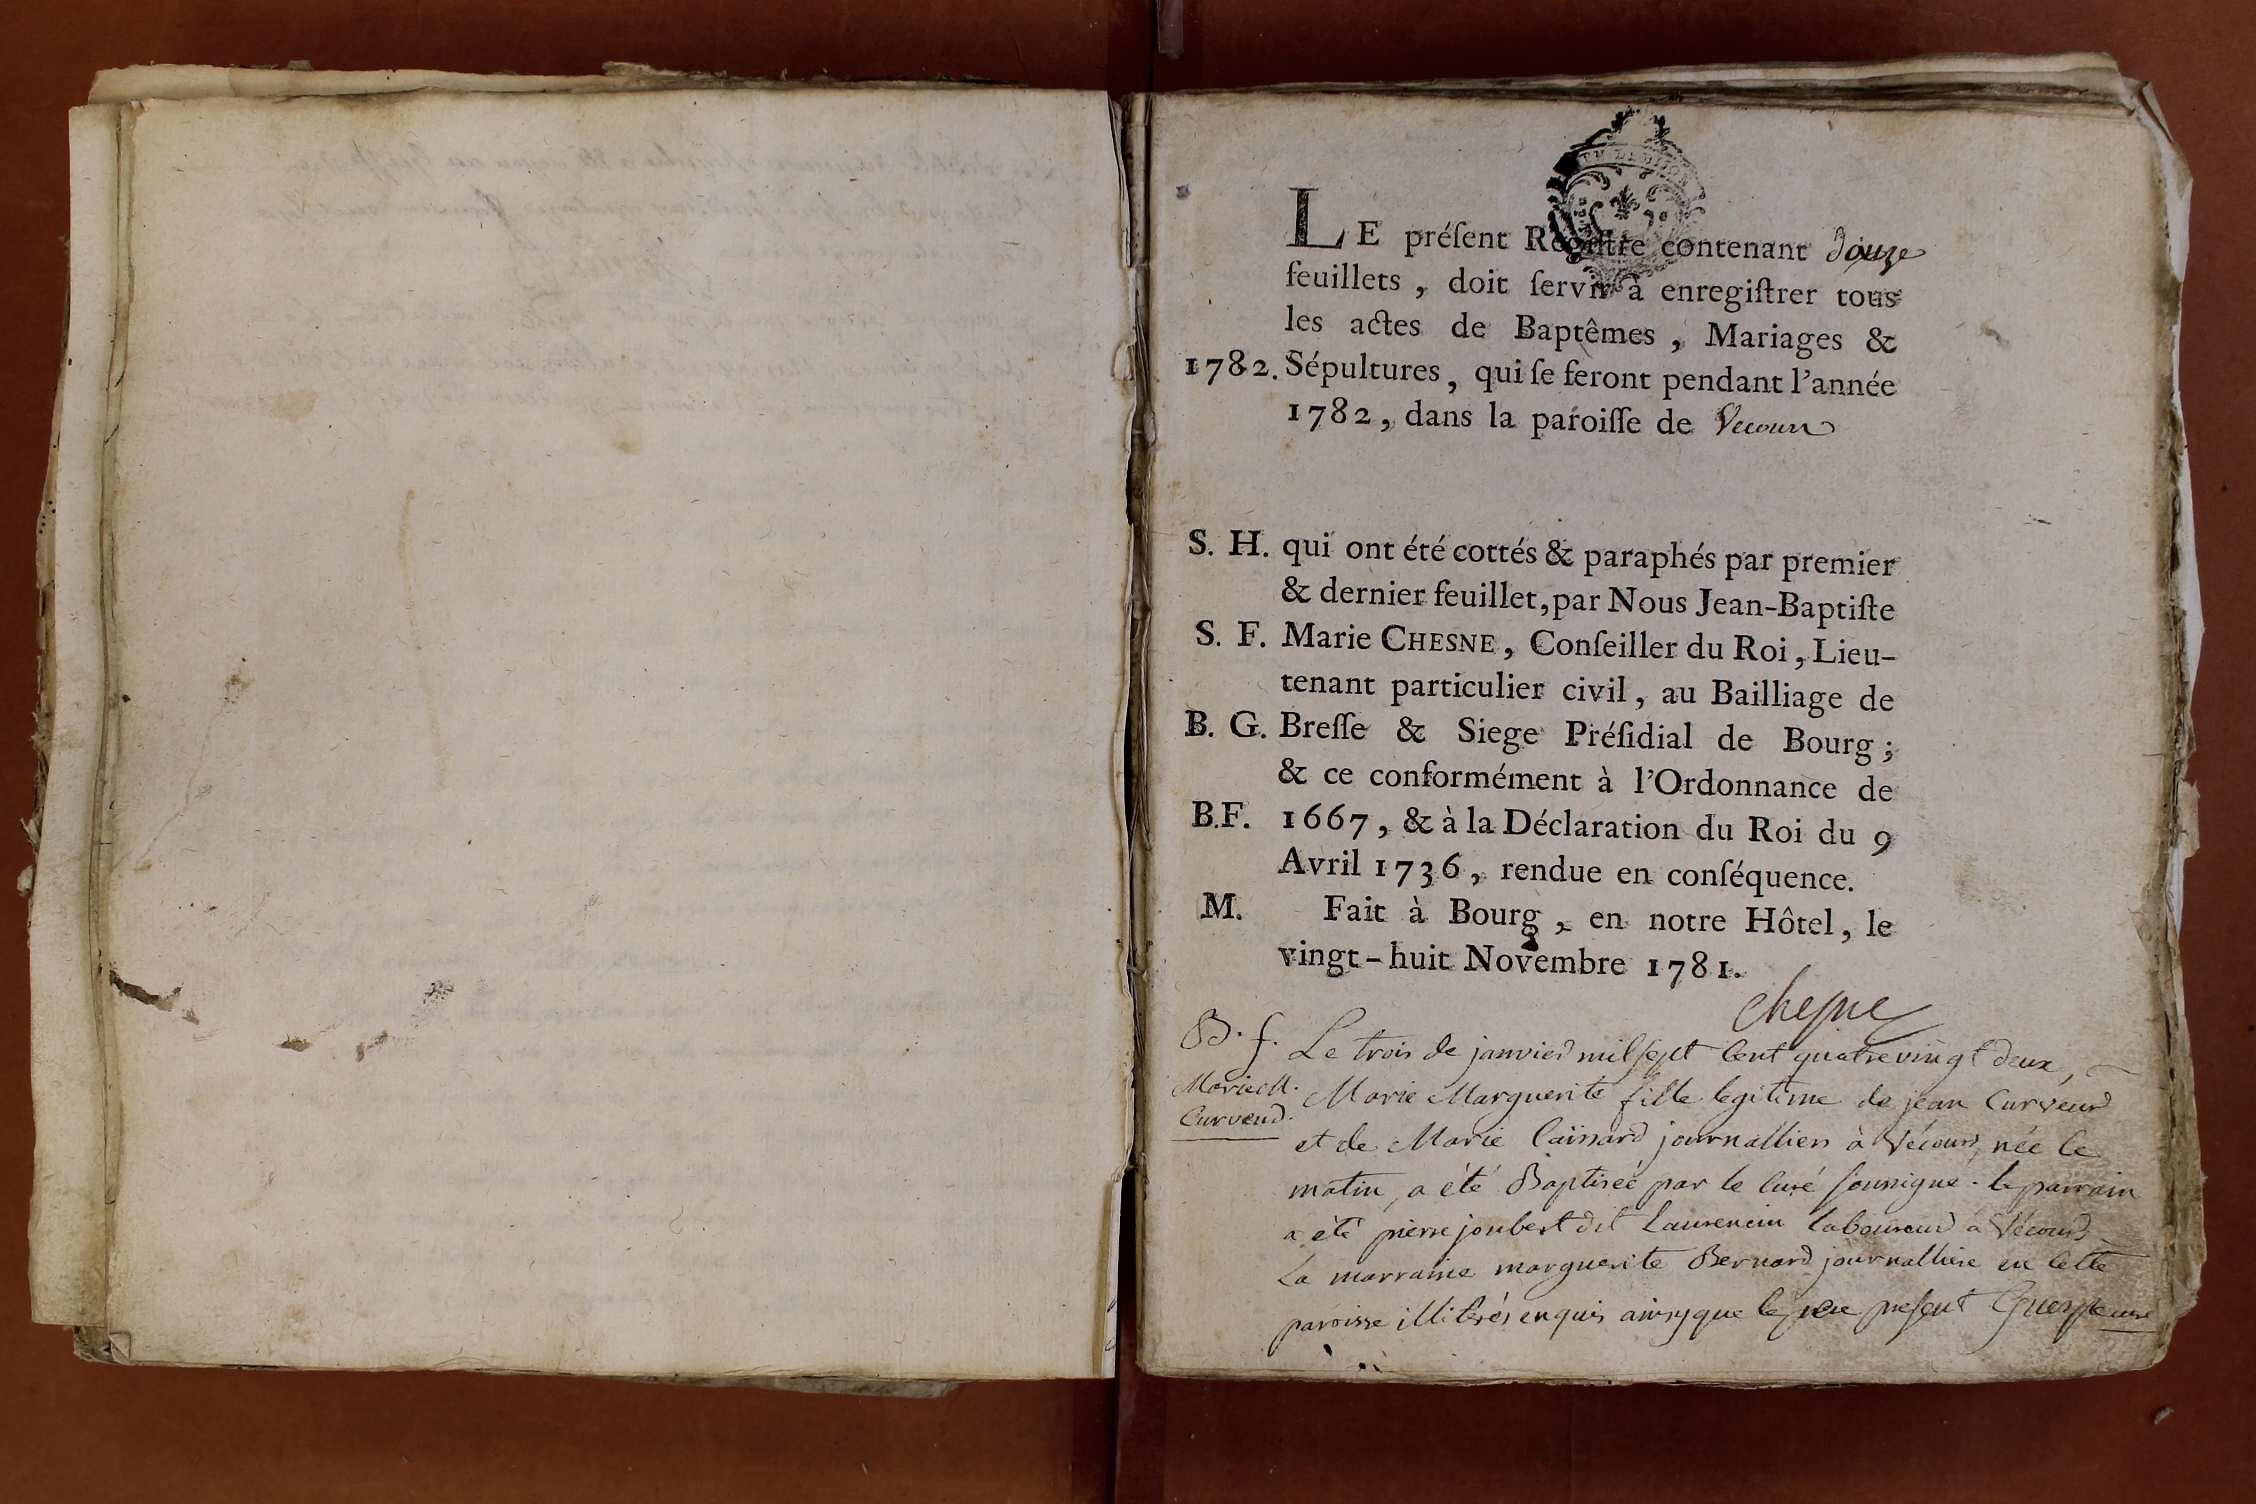 LE préſent Regiſtre contenant douze
feuillets, doit ſervir à enregiſtrer tous
les actes de Baptêmes, Mariages &
1782. Sépultures, qui ſe feront pendant l'année
1782, dans la paroiſſe de Vecour
S. H. qui ont été cottés & paraphés par premier
& dernier feuillet, par Nous Jean-Baptiſte
S. F. Marie CHESNE, Conſeiller du Roi, Lieu-
tenant particulier civil, au Bailliage de
B. G. Breſſe & Siege Préſidial de Bourg;
& ce conformément à l'Ordonnance de
B.F. 1667, & à la Déclaration du Roi du 9
Avril 1736, rendue en conſéquence.
M. Fait à Bourg, en notre Hôtel, le
vingt-huit Novembre 1781.
Chesne
B. f. Le trois de janvier mil sept Cent quatrevingt deux,
Marie M. Marie Marguerite fille legitime de jean Curveur
Curveur. et de Marie journallier à Vécour, née le
matin, a été Baptisée par le Curé soussigné. le parrain
a été pierre joubert dit Laurencin laboureur à Vécour
La marraine marguerite Bernard journalliere en Cette
paroisse illiterés enquis ainsy que le pere present